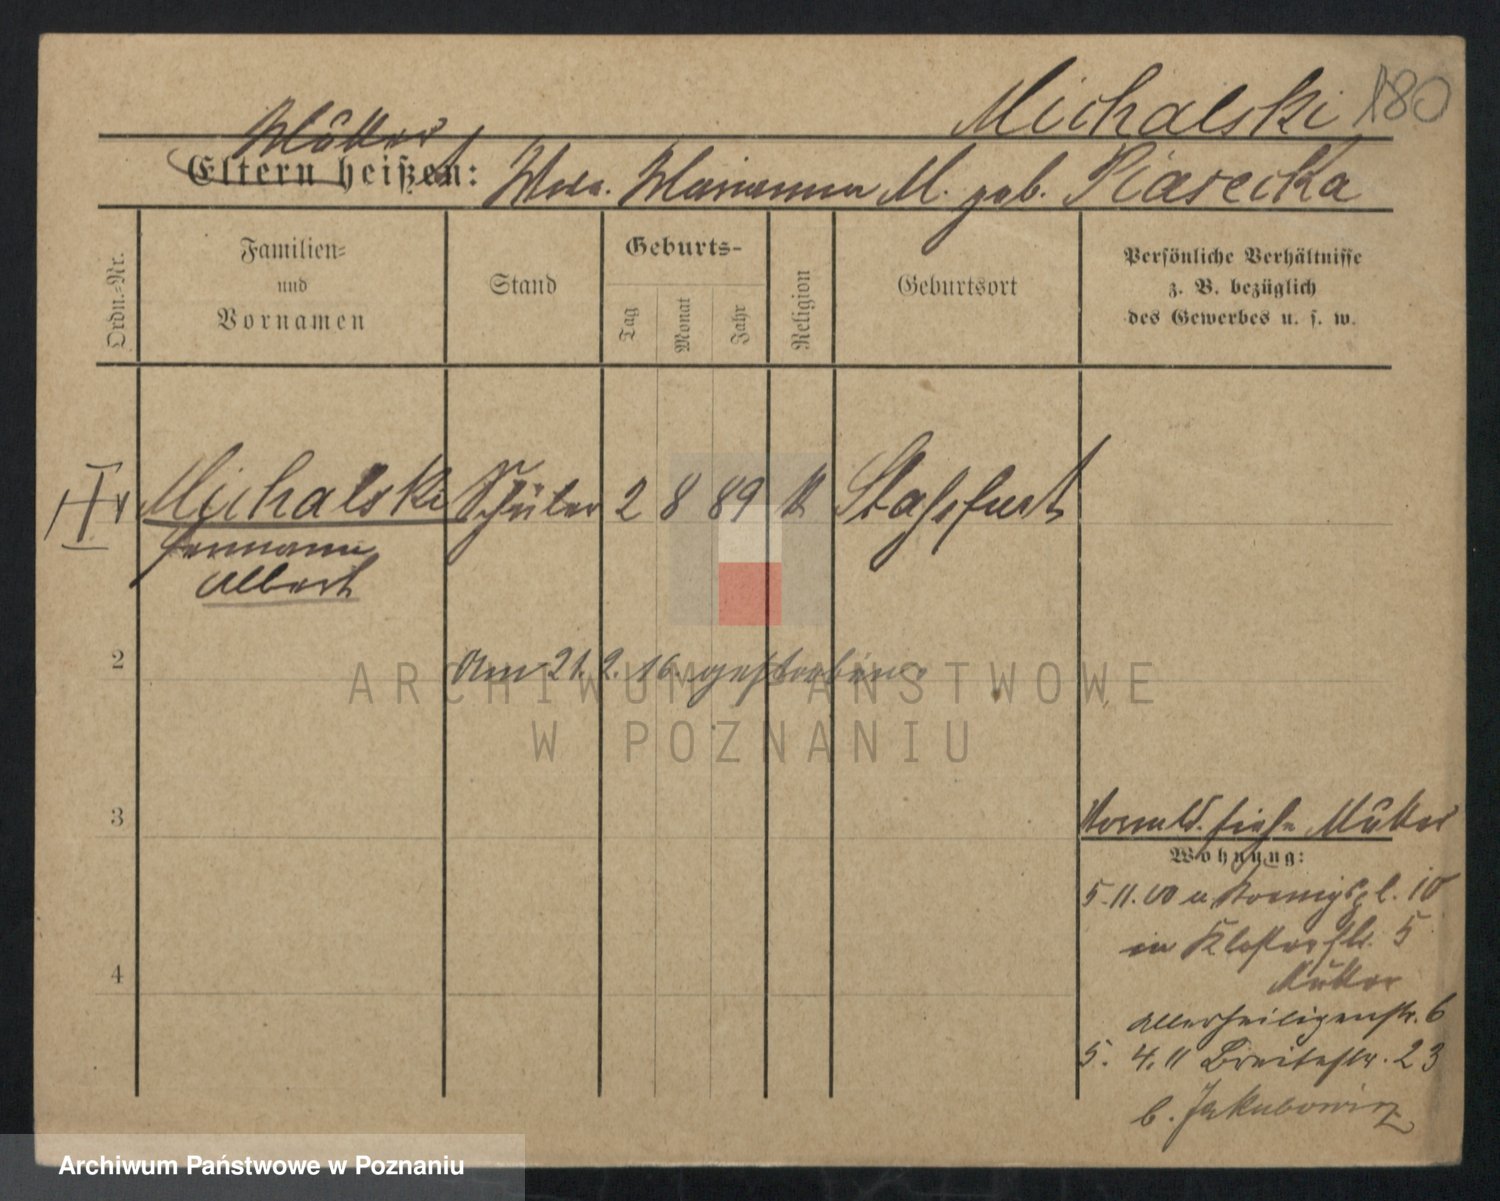 Michalski 180
Mutter
Eltern heißen: Wwe. Marianna M. geb. Piasecka
Ordn.-Nr.
Familien-
und
Vornamen
Stand
Geburts-
Tag
Monat
Jahr
Religion
Geburtsort
Persönliche Verhältnisse
z. B. bezüglich
des Gewerbes u. s. w.
Michalski Schüler 2 8 89 k Stassfurt
Hermann
Albert
2
Am 21. 2. 16. gestorben.
3
siehe Mutter
Wohnung:
5.11.00 u Koenigspl. 10
in Klosterstr. 5
Mutter
4
Allerheiligenstr. 6
5. 4. 11 Breitestr. 23
b. Jakubowicz
ARCHIWUM PAŃSTWOWE
W POZNANIU
Archiwum Państwowe w Poznaniu